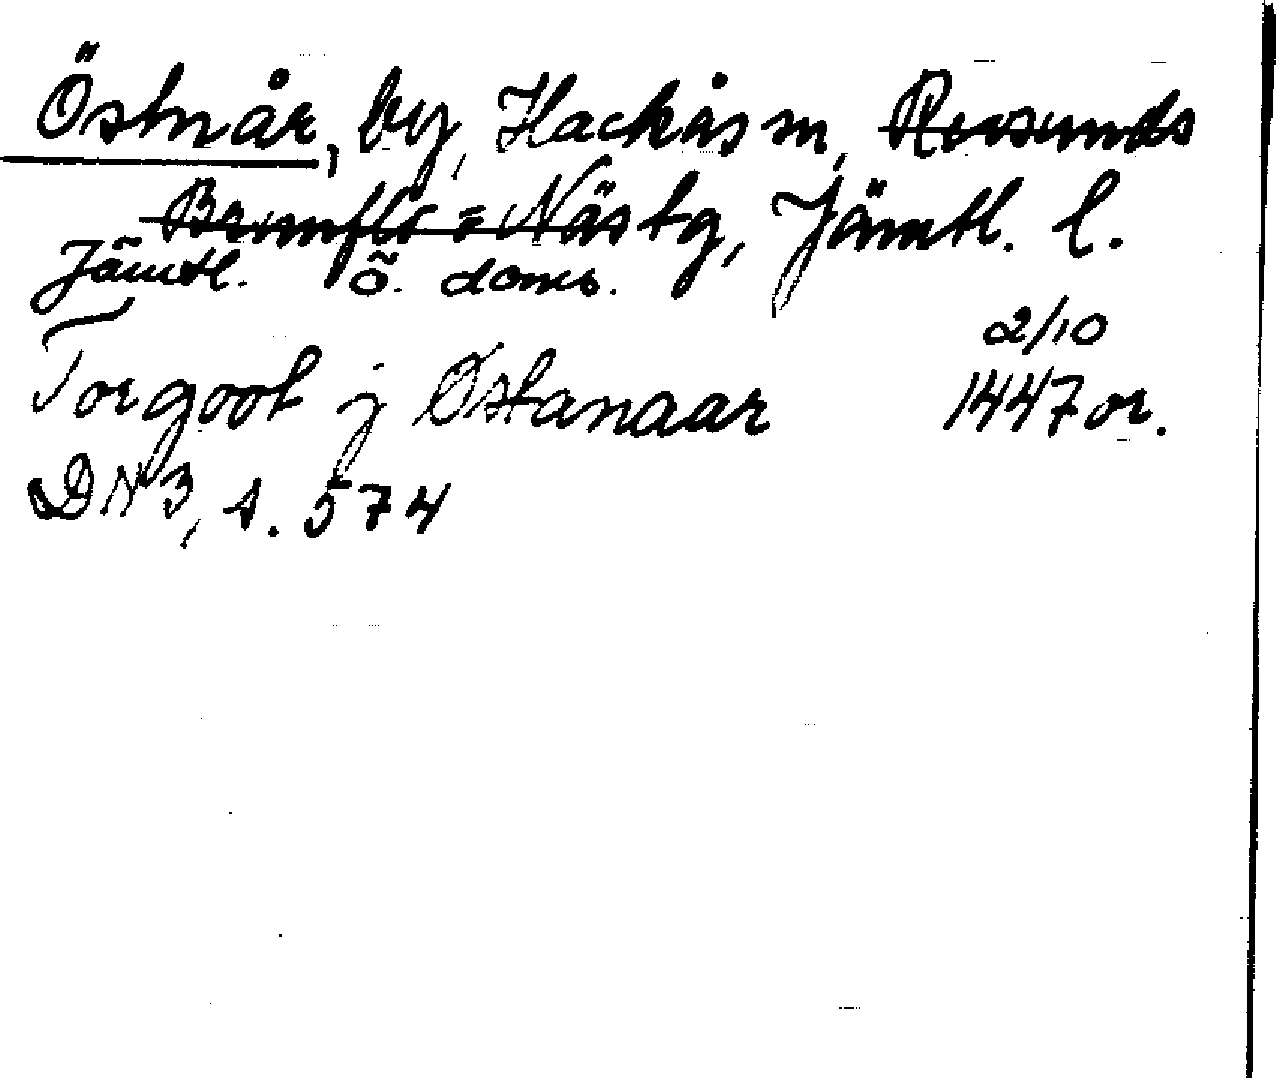 Östnår, by, Hackås sn, Revsunds
Brunflo = Näs tg, Jämtl. l.
Jämtl. Ö. doms.
2/10
Torgoot j Østanaar 1447 or.
DN 3, s. 574